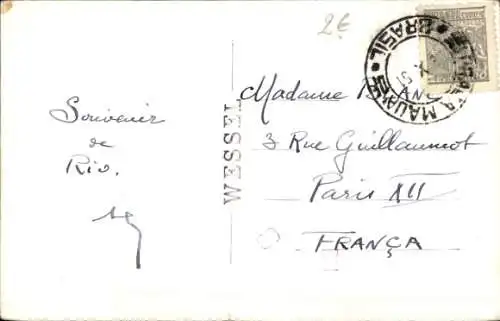 2€
Souvenir
de
Rio.
WESSEL
BRASIL
MAUA
51
Madame
3 Rue Guillaumot
Paris XII
FRANÇA